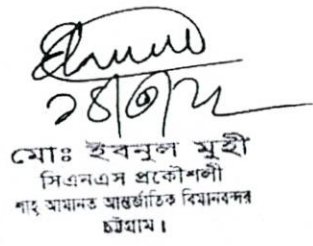 মোঃ ইবনুল মুহী
সিএনএস প্রকৌশলী
শাহ আমানত আন্তর্জাতিক বিমানবন্দর
চট্টগ্রাম।